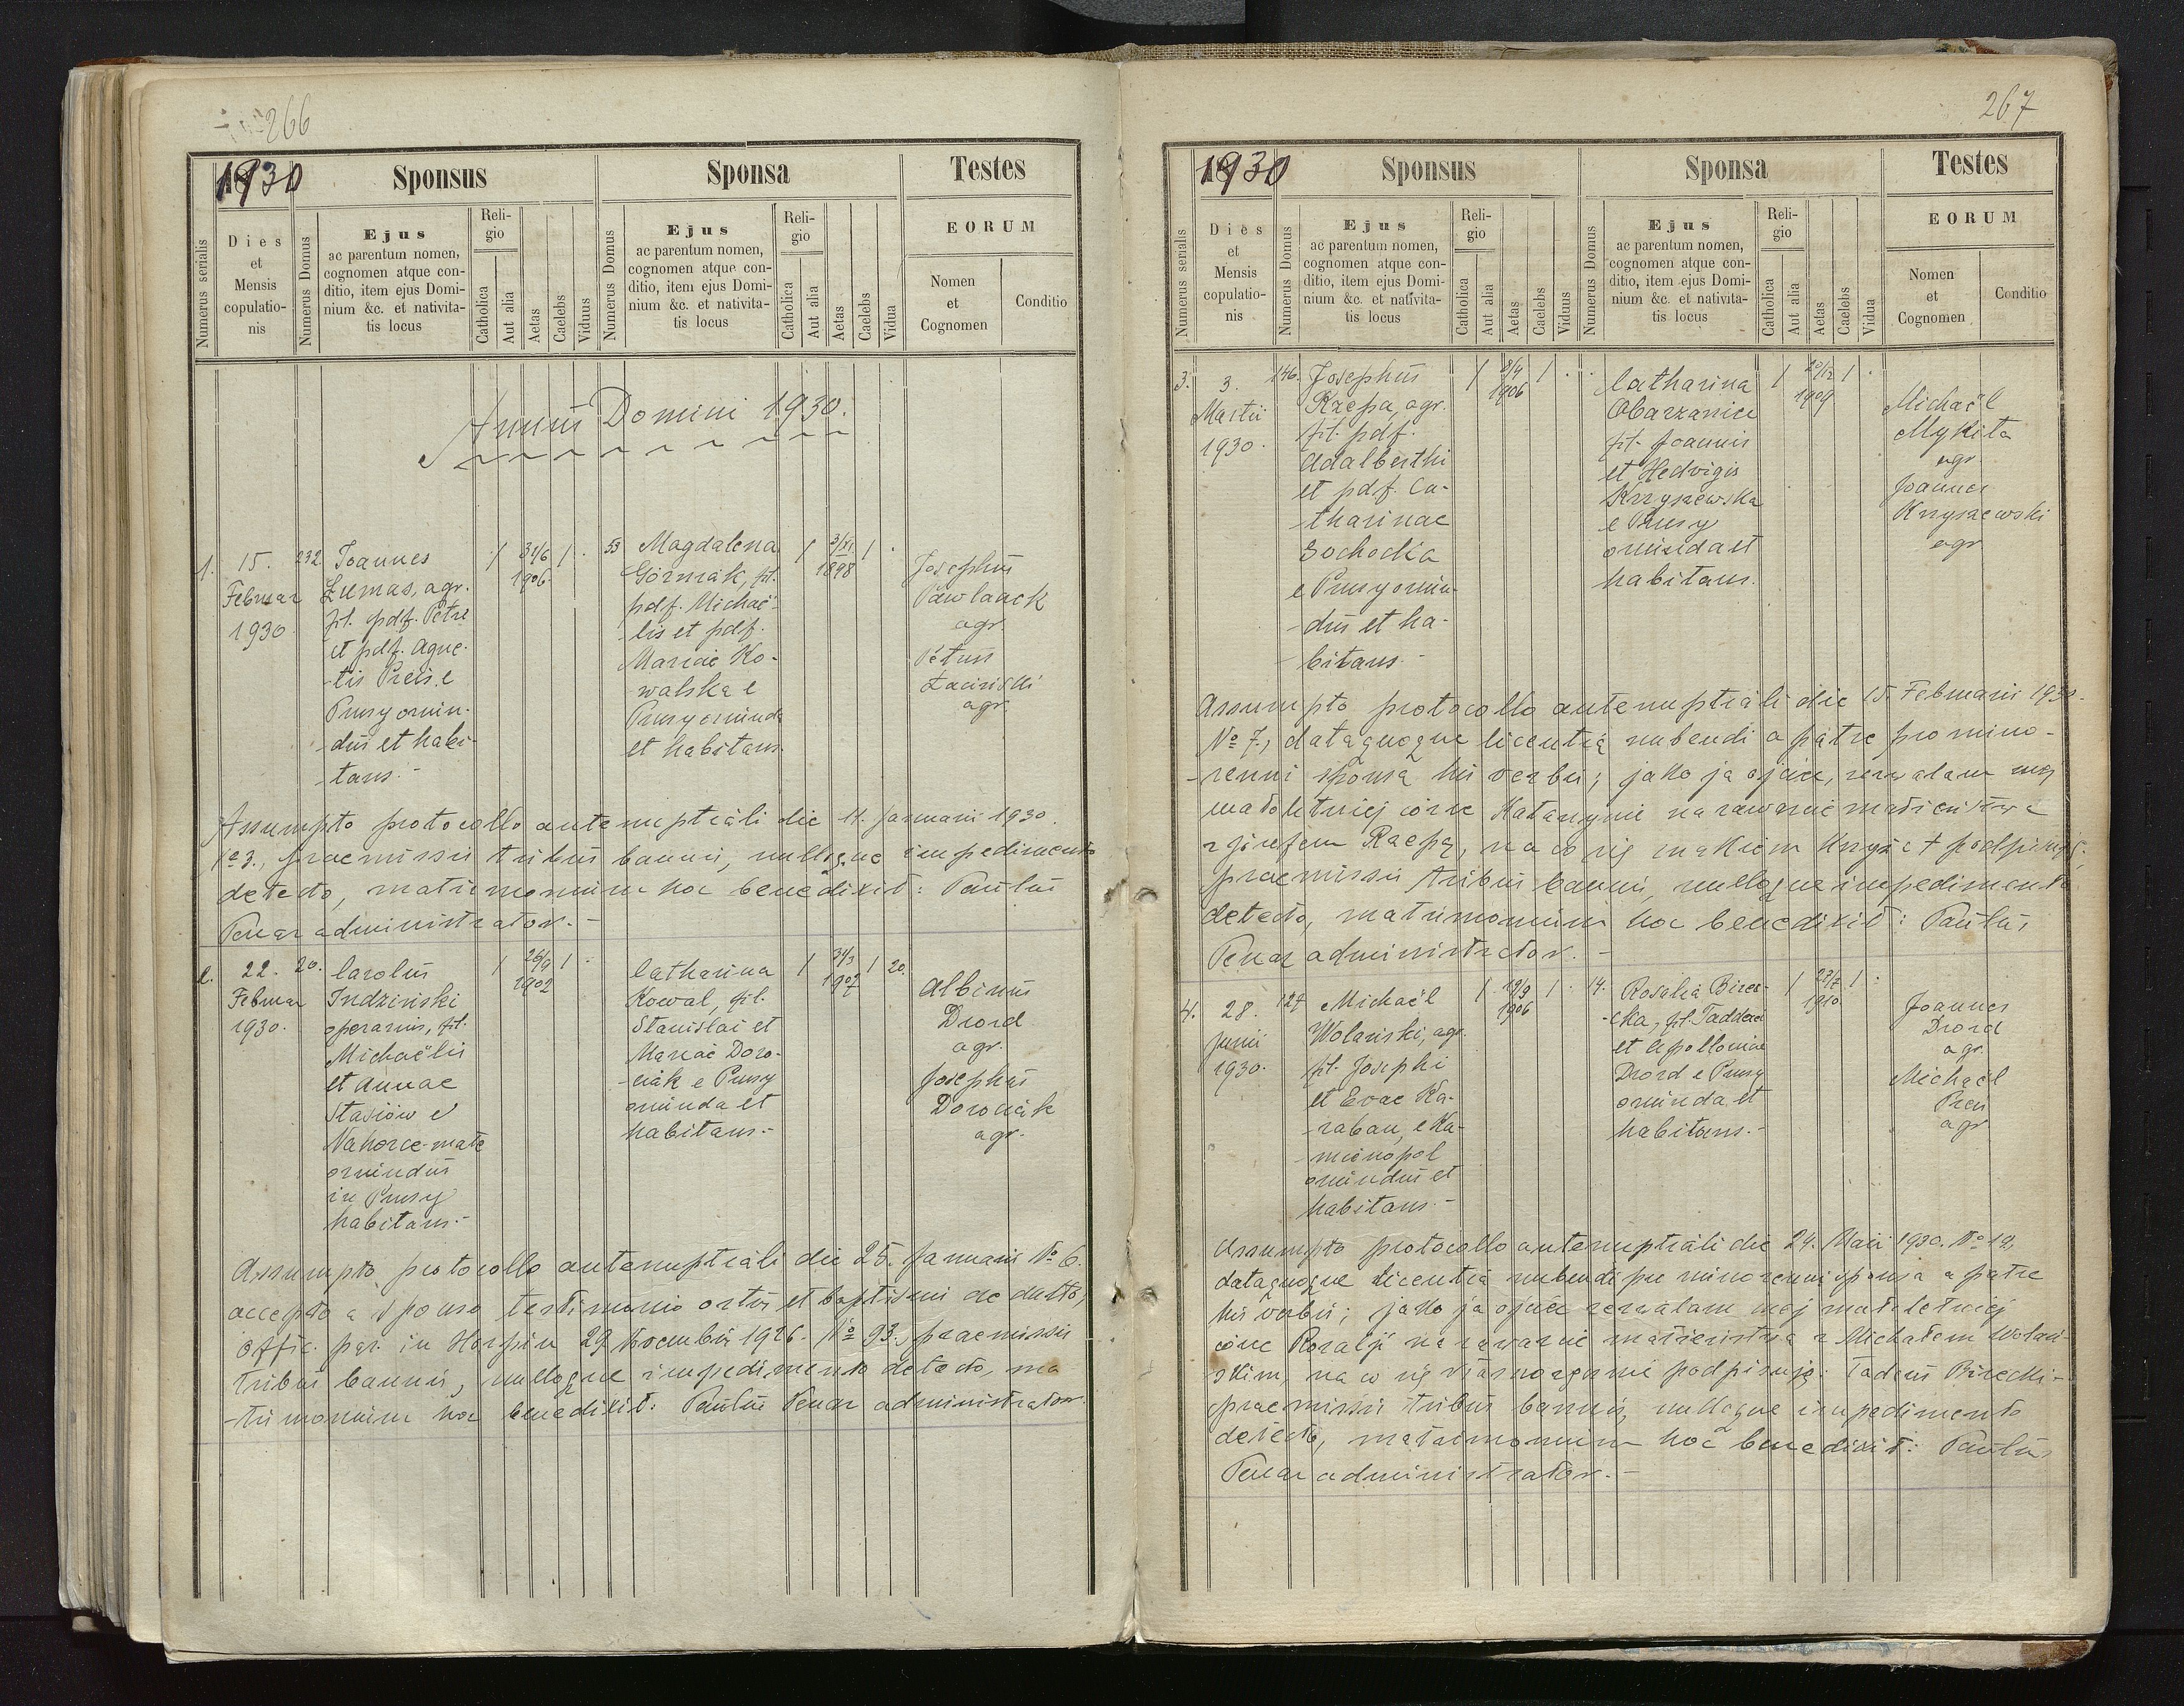 266
1930
Sponsus
Sponsa
Testes
Numerus serialis
Dies
et
Mensis
copulatio-
nis
Numerus Domus
Ejus
ac parentum nomen,
cognomen atque con-
ditio, item ejus Domi-
nium &c. et nativita-
tis locus
Reli-
gio
Catholica
Aut alia
Aetas
Caelebs
Viduus
Numerus Domus
Ejus
ac parentum nomen,
cognomen atque con-
ditio, item ejus Domi-
nium &c. et nativita-
tis locus
Reli-
gio
Catholica
Aut alia
Aetas
Caelebs
Vidua
EORUM
Nomen
et
Cognomen
Conditio
Annus Domini 1930.
1.
15.
Februar
1930
232
Joannes
Łumas, agr.
fil. pdf. Petri
et pdf. Agne-
-tis Preis. e
Prusy oriun-
-dus et habi-
-tans.-
1
1906
1
53
Magdalena
Górniak, fil.
pdf. Michaë-
-lis et pdf.
Mariae Ko-
walska e
Prusy oriunda
et habitans.
1
3/XI
1898
1
Josephus
Pawlaack
agr.
Petrus
agr.
Assumpto protocollo antenuptiali die 11. Januarii 1930.
No 3., praemissis tribus bannis, nulloque impedimento
detecto, matrimonium hoc benedixit: Paulus
Penar administrator.-
2.
22.
Februar
1930.
20.
Carolus
Indziński
operarius, fil.
Michaëlis
et Annae
Stasiów e
Nahorce-małe
oriundus
in Prusy
habitans.-
1
26/9
1902
1
Catharina
Kowal, fil.
Stanislai et
Mariae Doro-
-ciak e Prusy
oriunda et
habitans.-
1
31/3
1907
1
20.
Albinus
Drozd
agr.
Josephus
Dorociak
agr.
Assumpto protocollo antenuptiali die 25. Januarii No 6.
accepto a sponso testimonio ortus et baptismi de datto,
offic. par. in Horpin 29 Novembris 1926. No 93., praemissis
tribus bannis, nulloque impedimento detecto, ma-
-trimonium hoc benedixit: Paulus Penar administrator.
267
1930
Sponsus
Sponsa
Testes
Numerus serialis
Dies
et
Mensis
copulatio-
nis
Numerus Domus
Ejus
ac parentum nomen,
cognomen atque con-
ditio, item ejus Domi-
nium &c. et nativita-
tis locus
Reli-
gio
Catholica
Aut alia
Aetas
Caelebs
Viduus
Numerus Domus
Ejus
ac parentum nomen,
cognomen atque con-
ditio, item ejus Domi-
nium &c. et nativita-
tis locus
Reli-
gio
Catholica
Aut alia
Aetas
Caelebs
Vidua
EORUM
Nomen
et
Cognomen
Conditio
3.
3.
Martii
1930.
146.
Josephus
Rzepa, agr.
fil. pdf.
Adalberthi
et pdf. Ca-
-tharinae
Sochocka
e Prusy oriun-
-dus et ha-
-bitans.-
1
8/4
1906
1
Catharina
Obarzanice
fil. Joannis
et Hedvigis
Krzyszewska
e Prusy
oriunda et
habitans.
1
20/12
1909
1
Michaël
Mykita
agr
Joannes
Krzyszewski
agr
Assumpto protocollo antenuptiali die 15. Februarii 1930.
No 7., dataquoque licentia nubendi a patre pro mino-
-renni sponsa his verbis; jako ja ojciec, zezwalam mej
małoletniej córce Katarzynie na zawarcie małżeństwa
z Józefem Rzepą, na co się znakiem krzyża + podpisuję;
praemissis tribus bannis, nulloque impedimento
detecto, matrimonium hoc benedixit: Paulus
Penar administrator.-
4.
28.
Junii
1930.
127
Michaël
Wolański, agr.
fil. Josephi
et Evae Ka-
-raban, e Ka-
-mionopol
oriundus et
habitans.-
1
19/9
1906
1
14.
Rosalia Birec-
-cka, fil. Taddaei
et Apolloniae
Drozd e Prusy
oriunda et
habitans.-
1
27/7
1910
1
Joannes
Drozd
agr.
Michaël
Preis
agr.
Assumpto protocollo antenuptiali die 24. Maii 1930. No 12,
dataquoque licentia nubendi pro minorenni sponsa a patre
his verbis; jako ja ojciec zezwalam mej małoletniej
córce Rozalji na zawarcie małżeństwa z Michałem Wolań-
skim, na co się własnoręcznie podpisuję: Tadeus Birecki-
praemissis tribus bannis, nulloque impedimento
detecto, matrimonium hoc benedixit: Paulus
Penar administrator.-